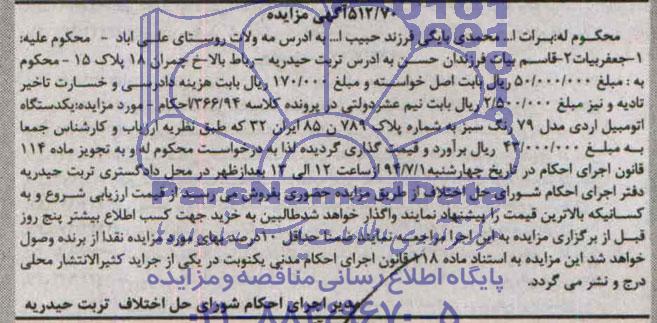 ۵۱۲/۷۰آگهی مزایده
محکوم له:برات ا... محمدی بایگی فرزند حبیب ا... به ادرس مه ولات روستای علی اباد - محکوم علیه:
۱-جعفربیات۲-قاسم بیات فرزندان حسن به آدرس تربت حیدریه -رباط بالا-خ چمران ۱۸ پلاک ۱۵ - محکوم
به : مبلغ ۵۰/۰۰۰/۰۰۰ ریال بابت اصل خواسته و مبلغ ۱۷۰/۰۰۰ ریال بابت هزینه دادرسی و خسارت تاخیر
تادیه و نیز مبلغ ۲/۵۰۰/۰۰۰ ریال بابت نیم عشردولتی در پرونده کلاسه ۳۶۶/۹۴/احکام - مورد مزایده:یکدستگاه
اتومبیل اردی مدل ۷۹ رنگ سبز به شماره پلاک ۷۸۹ ن ۸۵ ایران ۳۲ که طبق نظریه ارزیاب و کارشناس جمعا
به مبلغ ۴۳/۰۰۰/۰۰۰ ریال برآورد و قیمت گذاری گردیده لذا به درخواست محکوم له و به تجویز ماده ۱۱۴
قانون اجرای احکام در تاریخ چهارشنبه ۹۴/۷/۱ ازساعت ۱۲ الی ۱۳ بعدازظهر در محل دادگستری تربت حیدریه
دفتر اجرای احکام شورای حل اختلاف از طریق مزایده حضوری بفروش می رسد از قیمت ارزیابی شروع و به
کسانیکه بالاترین قیمت را پیشنهاد نمایند واگذار خواهد شدطالبین به خرید جهت کسب اطلاع بیشتر پنج روز
قبل از برگزاری مزایده به این اجرا مراجعه نمایند ضمنا حداقل ۱۰درصد بهای مورد مزایده نقدا از برنده وصول
خواهد شد این مزایده به استناد ماده ۱۱۸ قانون اجرای احکام مدنی یکنوبت در یکی از جراید کثیرالانتشار محلی
درج و نشر می گردد.
پایگاه اطلاع رسانی مناقصه و مزایده
مدیر اجرای احکام شورای حل اختلاف تربت حیدریه
۰۲۱-۸۸۳۴۹۶۷۰-۵